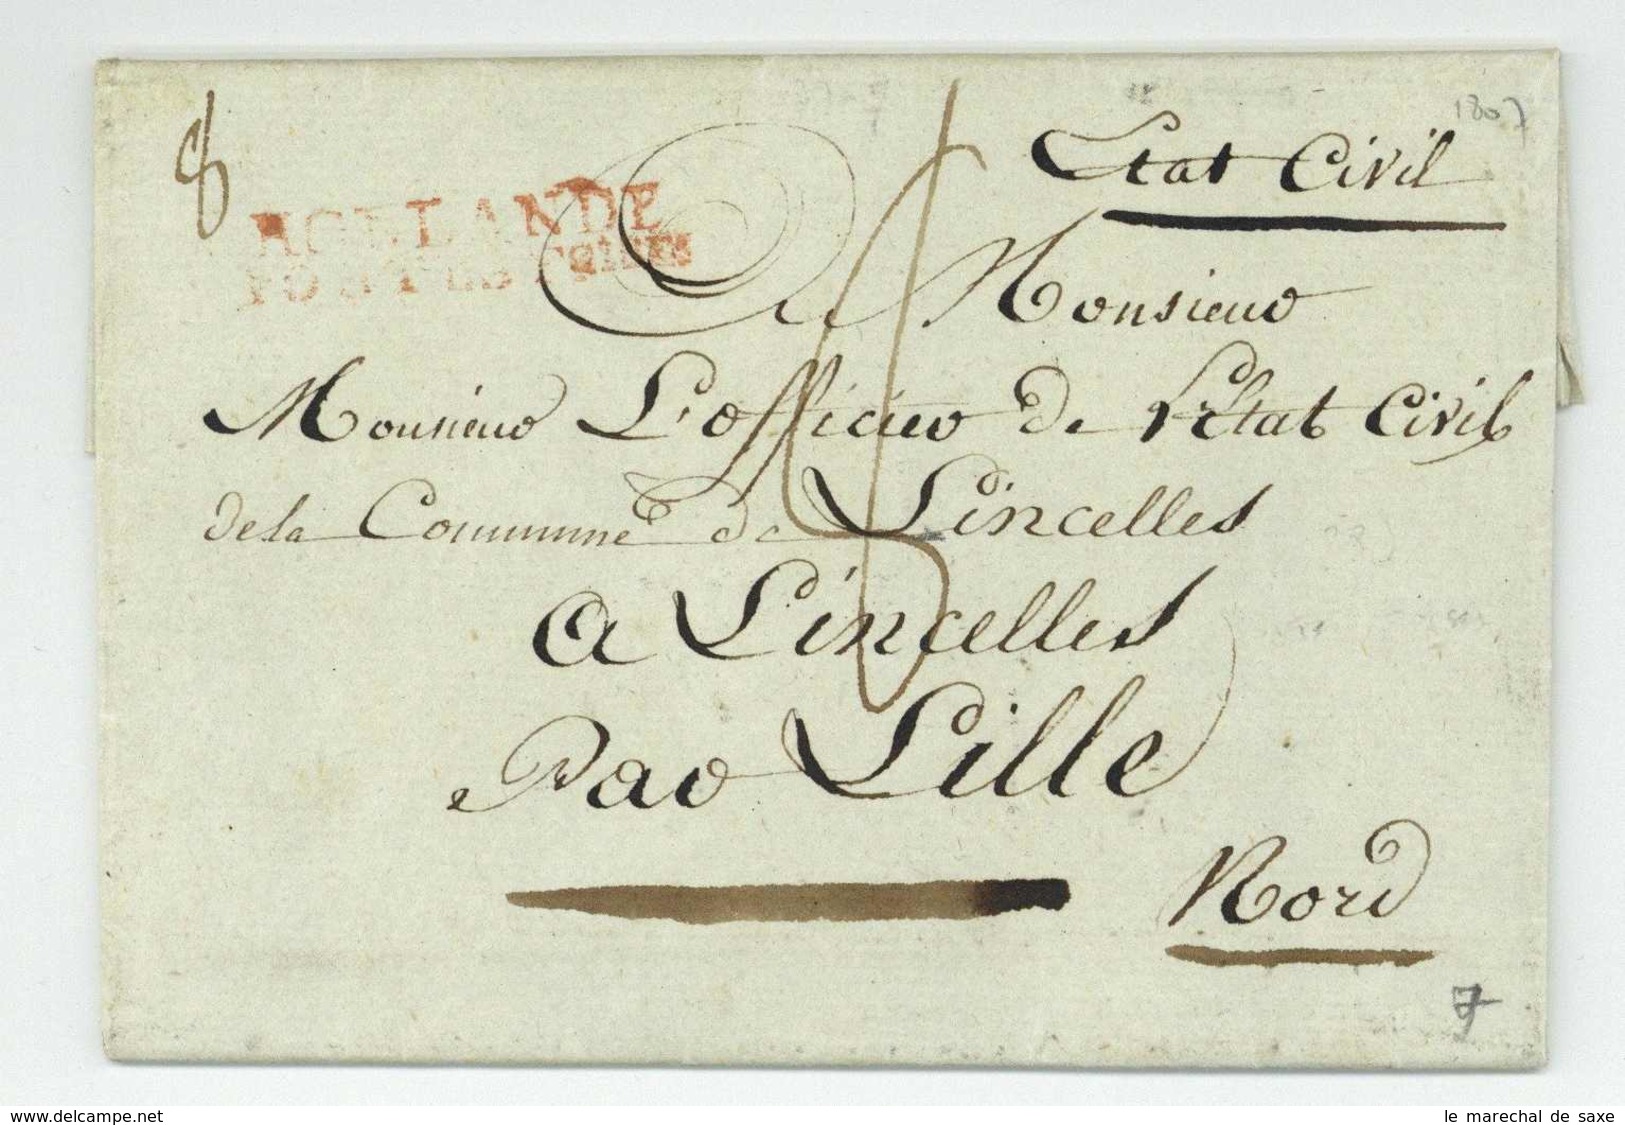 1807
8
Etat Civil
HOLLANDE
A Monsieur
Monsieur L'officier de l'Etat Civil
de la Commune de Lincelles
A Lincelles
Par Lille
Nord
7
www.delcampe.net
le marechal de saxe